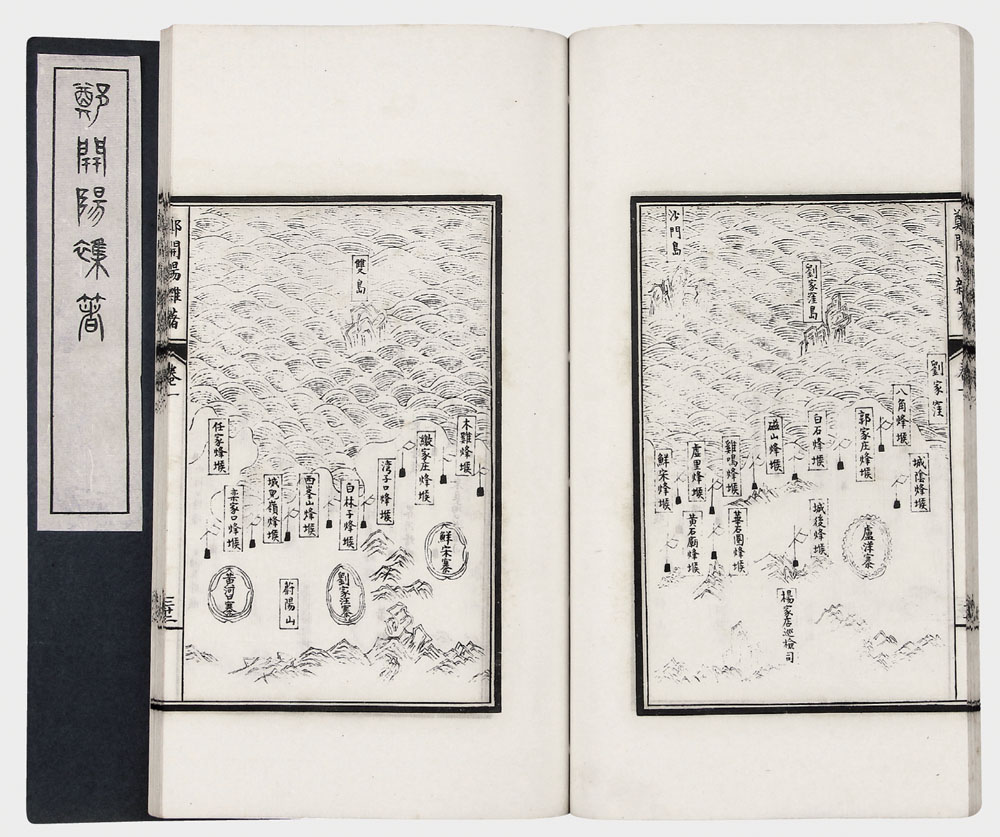 鄭開陽雜著
沙門島
劉家洼島
劉家窪
八角烽堠
郭家庄烽堠
白石烽堠
磁山烽堠
雞鳴烽堠
盧里烽堠
鮮宋烽堠
城陰烽堠
城後烽堠
華石圈烽堠
黃石廟烽堠
盧洋寨
楊家店巡檢司
雙島
木雞烽堠
家庄烽堠
湾子口烽堠
白林子烽堠
西峯山烽堠
城兒嶺烽堠
欒家口烽堠
任家烽堠
鮮宋寨
劉家汪寨
蔚陽山
黃河口寨
開陽雜著
卷一